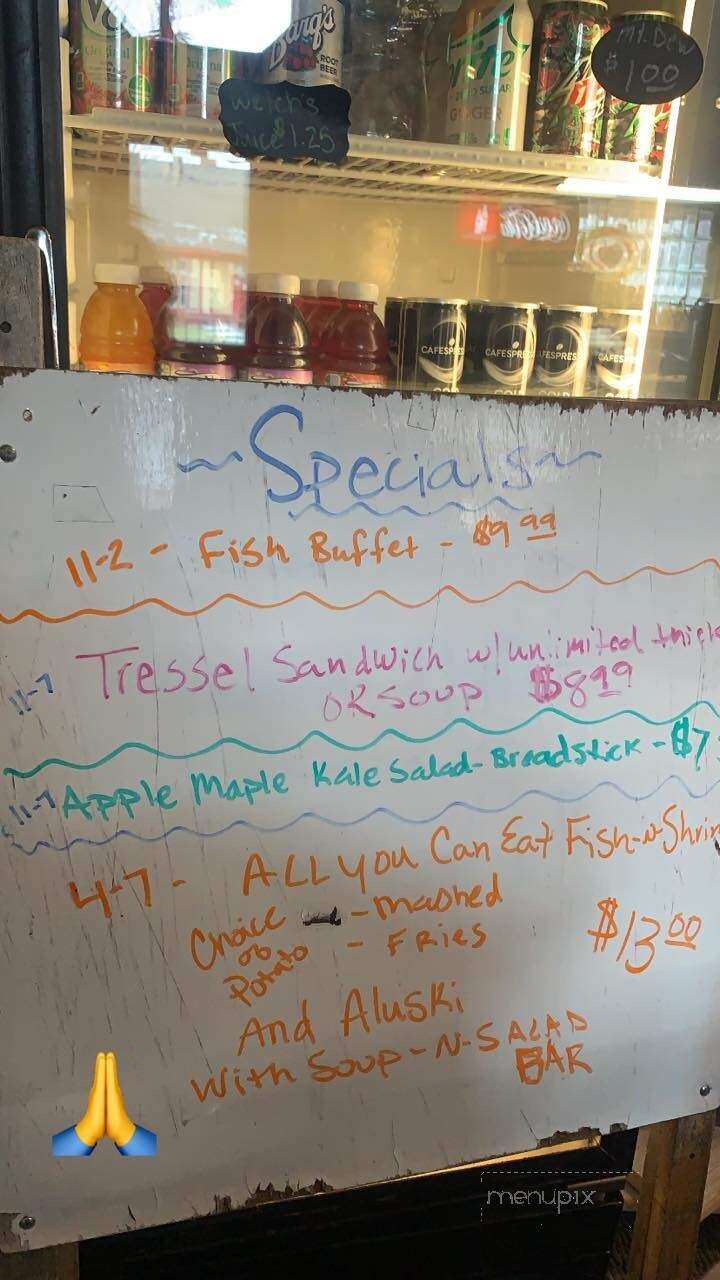 Barq's
ROOT BEER
ZERO SUGAR
GINGER
mt. Dew
$1.00
Welchs
Juice $1.25
Coca-Cola
CAFESPRE
CAFESPRE
AFESPRES
CAFESP
~Specials~
11-2 - Fish Buffet - $9.99
11-7 Tressel Sandwich w/unlimited
OR SOUP $8.99
11-7 Apple Maple Kale Salad - Breadstick - $7
4-7 - ALL you Can Eat Fish-N-Shrim
Choice of Potato - mashed
- FRies
$13.00
And Aluski
With Soup-N-SALAD
BAR
menupix